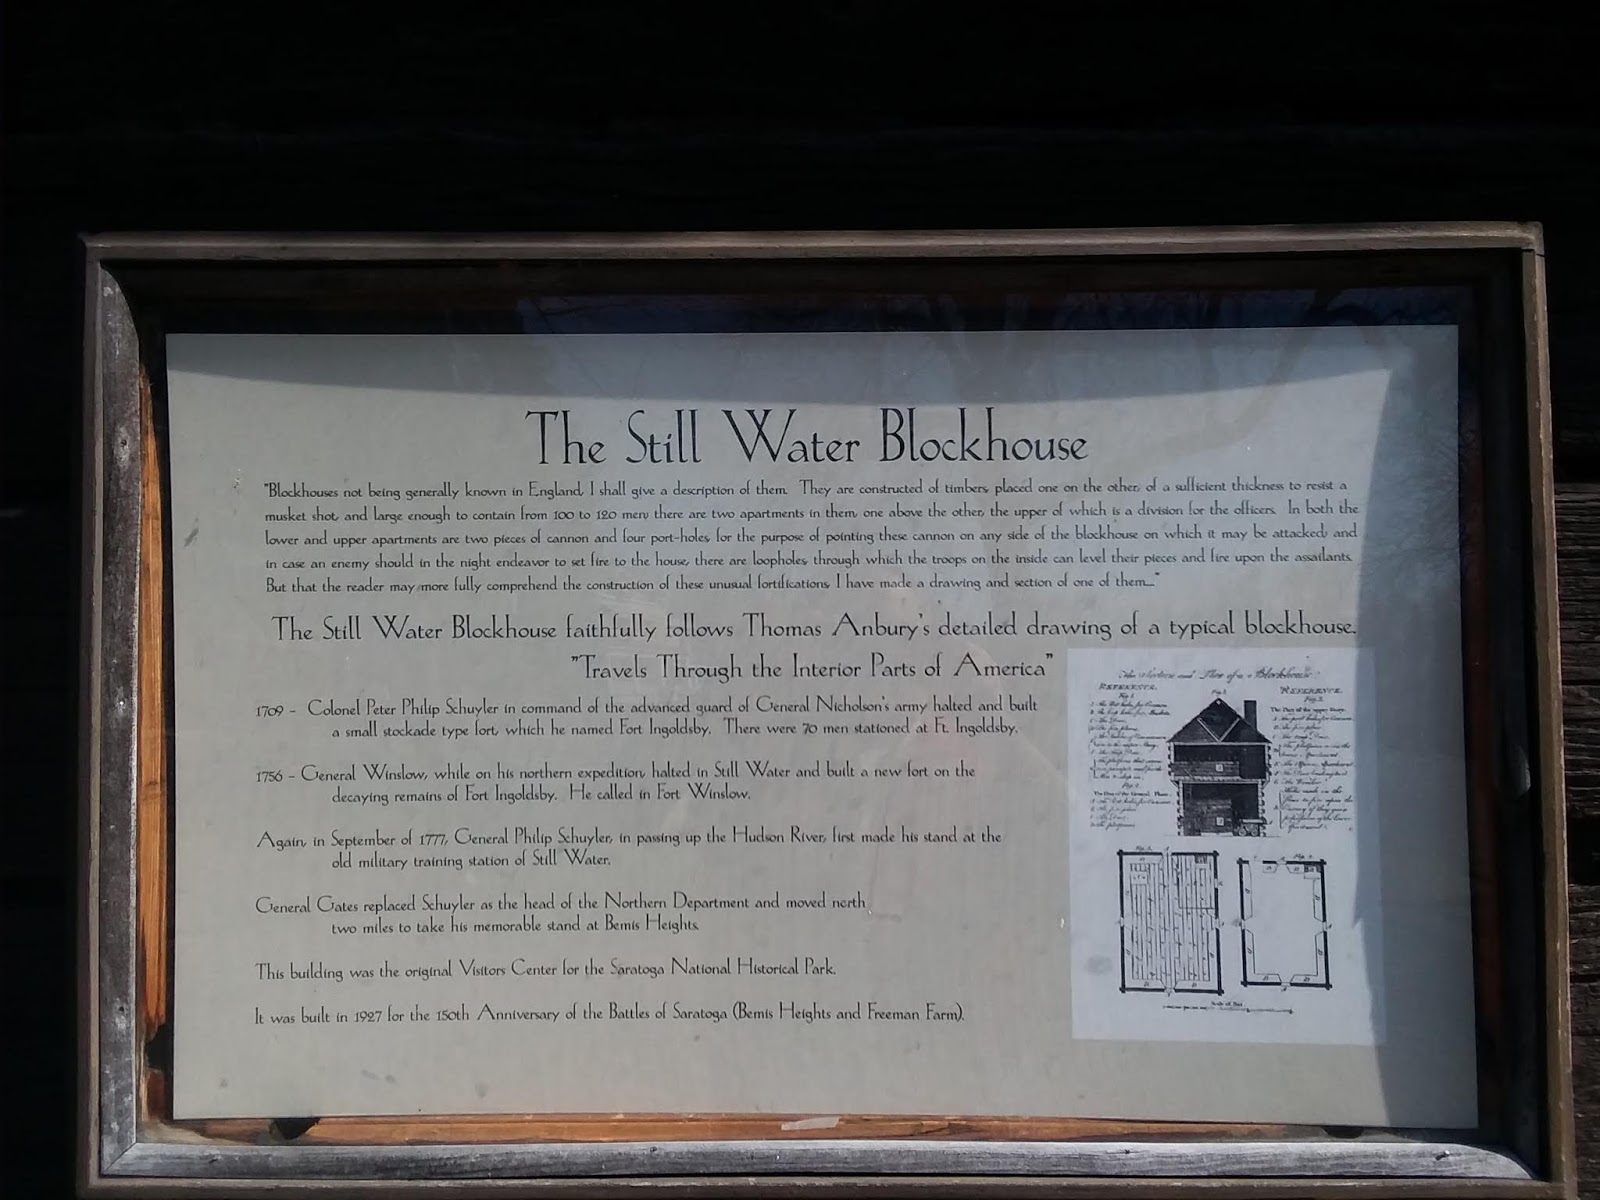 The Still Water Blockhouse
"Blockhouses not being generally known in England, I shall give a description of them. They are constructed of timbers, placed one on the other, of a sufficient thickness to resist a
musket shot, and large enough to contain from 100 to 120 men; there are two apartments in them, one above the other, the upper of which is a division for the officers. In both the
lower and upper apartments are two pieces of cannon and four port-holes, for the purpose of pointing these cannon on any side of the blockhouse on which it may be attacked; and
in case an enemy should in the night endeavor to set fire to the house, there are loopholes, through which the troops on the inside can level their pieces and fire upon the assailants.
But that the reader may more fully comprehend the construction of these unusual fortifications, I have made a drawing and section of one of them...."
The Still Water Blockhouse faithfully follows Thomas Anbury's detailed drawing of a typical blockhouse.
"Travels Through the Interior Parts of America"
1709 - Colonel Peter Philip Schuyler in command of the advanced guard of General Nicholson's army halted and built
a small stockade type fort, which he named Fort Ingoldsby. There were 70 men stationed at Ft. Ingoldsby.
1756 - General Winslow, while on his northern expedition, halted in Still Water and built a new fort on the
decaying remains of Fort Ingoldsby. He called in Fort Winslow.
Again, in September of 1777, General Philip Schuyler, in passing up the Hudson River, first made his stand at the
old military training station of Still Water.
General Gates replaced Schuyler as the head of the Northern Department and moved north
two miles to take his memorable stand at Bemis Heights.
This building was the original Visitors Center for the Saratoga National Historical Park.
It was built in 1927 for the 150th Anniversary of the Battles of Saratoga (Bemis Heights and Freeman Farm).
Plan of a Blockhouse
REFERENCE.
REFERENCE.